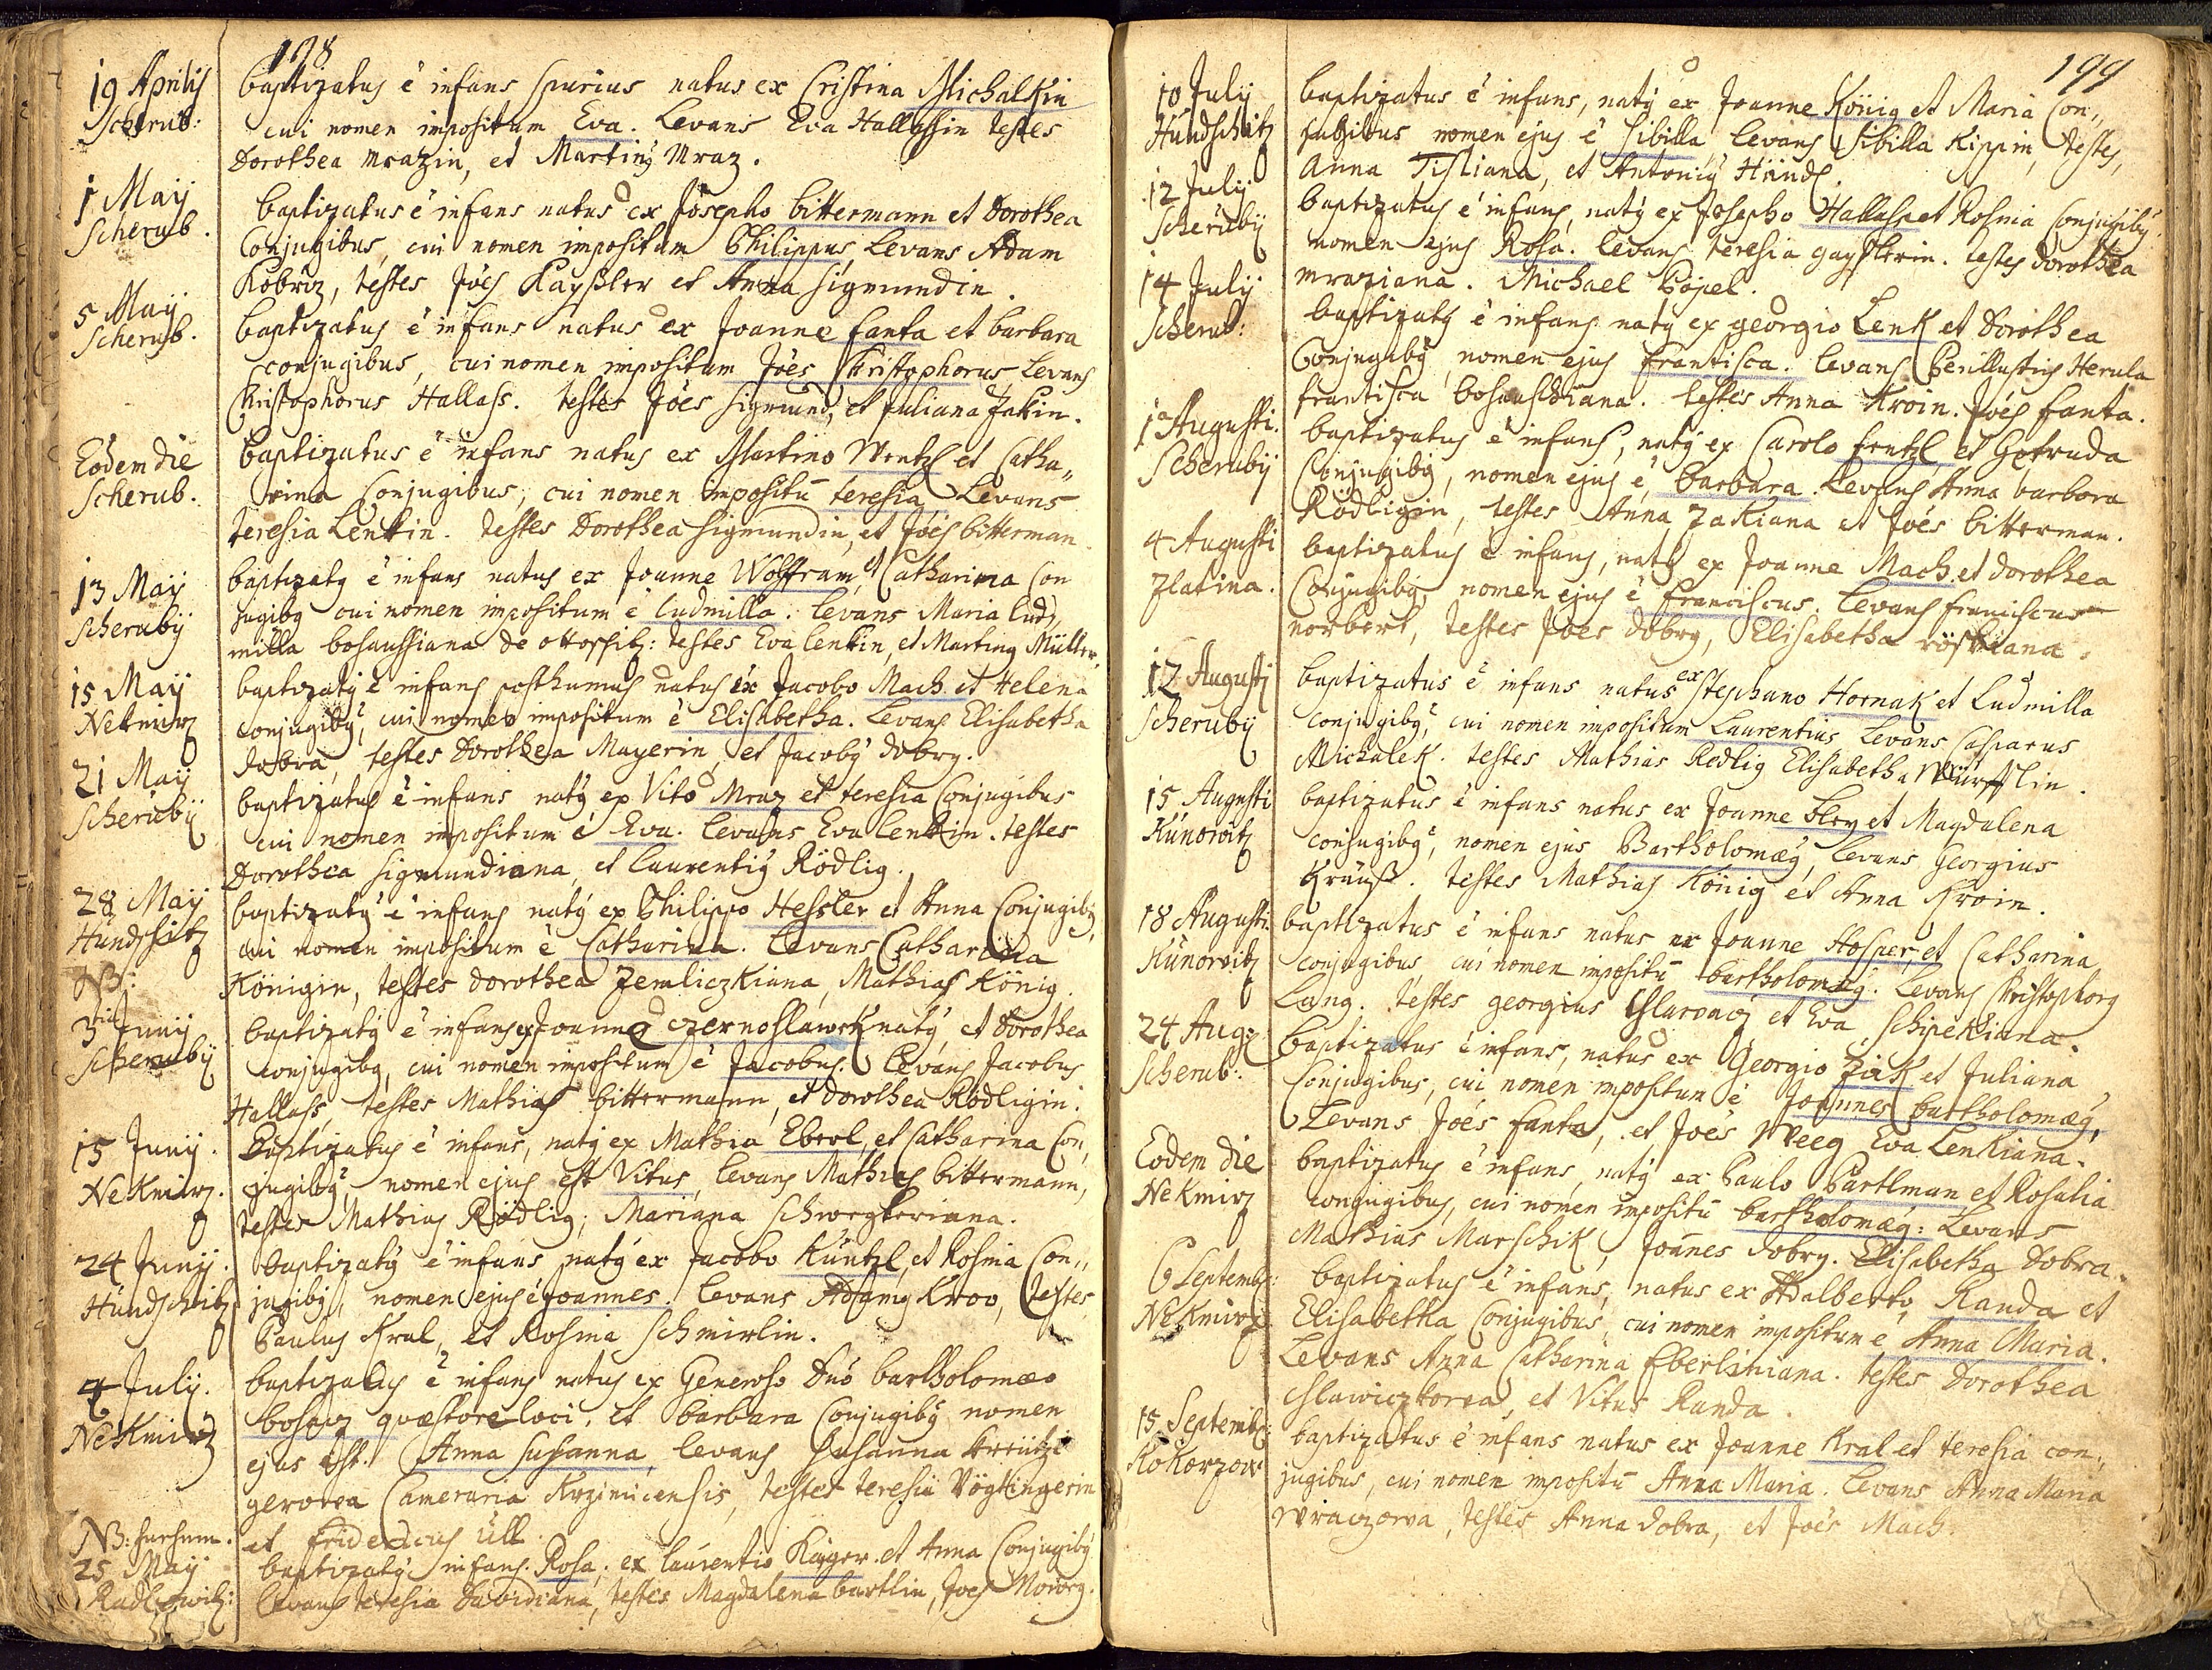 198
19 Aprilis
Scherub:
baptizatus ē infans spurius natus ex Cristina Michalkin
cui nomen impositum Eva. Levans Eva Hallassin testes
Dorothea Mrazin, et Martinꝰ Mraz.
1 Maij
Scherub.
baptizatus ē infans natus ex Josepho bittermann et Dorothea
Conjugibus, cui nomen impositum Philippus, Levans Adam
Kobrīz, testes Jōes Kayßler et Anna Sigmundin.
5 Maij
Scherub.
baptizatus ē infans natus ex Joanne fanta et barbara
conjugibus, cui nomen impositum Jōes Christophorus Levans
Christophorus Hallass. testes Jōes Sigmund, et Juliana Zakin.
Eodem die
Scherub.
baptizatus ē infans natus ex Martino Wentzl et Catha„
rina Conjugibus, cui nomen impositū teresia Levans
teresia Lenkin. testes Dorothea Sigmundin, et Jōes bitterman.
13 Maij
Scheruby
baptizatꝰ ē infans natus ex Joanne Wolffram, et Catharina Con
jugibꝰ cui nomen impositum ē ludmilla. Levans Maria lud„
milla bosaussiana de ottossitz: testes Eva lenkin, et Martinꝰ Müller.
15 Maij
Nekmirz
baptizatꝰ ē infans posthumus natus ex Jacobo Mach et Helena
conjugibꝰ, cui nomen impositum ē Elisabetha. Levans Elisabetha
dobra, testes Dorothea Mayerin, et Jacobꝰ dobry.
21 Maij
Scheruby
baptizatus ē infans natꝰ ex Vito Mraz et teresia Conjugibus
cui nomen impositum ē Eva. levans Eva lenkin. testes
Dorothea Sigmundiana, et laurentiꝰ Rödlig.
28 Maij
Hundschitz
baptizatꝰ ē infans natꝰ ex Philippo Hessler et Anna Conjugibꝰ,
cui nomen impositum ē Catharina. levans Catharina
Königin, testes dorothea Zemliczkiana, Mathias König.
NB:
3tia Junij
Scheruby
baptizatꝰ ē infans ex Joanne czernoslawsk natꝰ, et Dorothea
conjugibꝰ, cui nomen impositum ē Jacobus. Levans Jacobus
Hallass, testes Mathias bittermann, et dorothea Rödligin.
15 Junij.
NeKmirz.
Baptizatus ē infans, natꝰ ex Mathia Eberl, et Catharina Con„
jugibꝰ, nomen ejus est Vitus, levans Mathias bittermann,
testes Mathias Rödlig, Mariana
24 Junij.
Hundschitz
baptizatꝰ ē infans natꝰ ex Jacobo Küntzl, et Rosina Con„
jugibꝰ, nomen ejus ē Joannes. Levans Adamꝰ Kroo, testes
Paulus Kral, et Rosina Schmirlin.
4 July.
NeKmirz
baptizatus ē infans natus ex Generoso Dnō bartholomæo
bosacz quæstore loci, et barbara Conjugibꝰ nomen
ejus est. Anna Susanna, levans Susanna Kreützi
gerorea Cameraria Krzimicensis, testes teresia Vögtingerin
et fridericus Ull.
NB:
25 Maij
Radlowitz:
baptizatꝰ infans. Rosa, ex laurentio Kayger et Anna Conjugibꝰ
levans teresia Davidiana, testes Magdalena bartlin, Joes
199
10 July
Hundschitz
baptizatus ē infans, natꝰ ex Joanne König et Maria Con„
jugibus nomen ejus ē Sibilla levans Sibilla Kippin, testes,
Anna Tisliana, et Antoniꝰ Händl.
12 July
Scheruby
baptizatus ē infans, natꝰ ex Josepho Hallass et Rosina Conjugibꝰ.
nomen ejus Rosa. levans teresia gayslerin. testes dorothea
mraziana. Michael Popel.
14 July
Scherub:
baptizatꝰ ē infans natꝰ ex georgio Lenk et Dorothea
Conjugibꝰ, nomen ejus frantisca. levans Perillustris Herula
frantisca bosaussiana. testes Anna Kroin. Jōes fanta.
1 Augusti.
Scheruby
baptizatus ē infans, natꝰ ex Carolo frntzl et Gotruda
Conjugibꝰ, nomen ejus ē, barbara. Levans Anna barbora
Rödligin, testes Anna Zakiana et Joēs bitterman.
4 Augusti
Zlatina.
baptizatus ē infans, natꝰ ex Joanne Mach et dorothea
Conjugibꝰ nomen ejus ē franciscus. levans franciscus
norbert, testes Joes dobry, Elisabetha
12 Augusti
Scheruby
baptizatus ē infans natus ex Stephano Hornak et Ludmilla
conjugibꝰ, cui nomen impositum Laurentius Levans Casparus
Michalek. testes Mathias Redlig Elisabetha Würfflin.
15 Augusti
Kunowitz
baptizatus ē infans natus ex Joanne bley et Magdalena
conjugibꝰ, nomen ejus Bartholomæꝰ, levans Georgius
Kraüß. testes Mathias König et Anna Kroin.
18 Augusti.
Kunowitz
baptizatus ē infans natus ex Joanne Hosper, et Catharina
conjugibus, cui nomen impositū bartholomæꝰ. Levans Christophorꝰ
Lang. testes georgius Hlavacz et Eva Schipekiana.
24 Aug:
Scherub:
baptizatus ē infans, natus ex Georgio Zak et Juliana
Conjugibus, cui nomen impositum ē Joannes bartholomæꝰ,
Levans Joēs fanta, et Joēs Weeg Eva Lenkiana.
Eodem die
NeKmirz
baptizatus ē infans, natꝰ ex Paulo Partlman et Rosalia
conjugibus, cui nomen impositū bartholomæꝰ: Levans
Mathias Marschik, Joānes dobry. Elisabetha Dobra.
6 Septemb:
NeKmirz
baptizatus ē infans, natus ex Adalberto Randa et
Elisabetha Conjugibus, cui nomen impositum ē Anna Maria.
Levans Anna Catharina Eberliniana. testes Dorothea
Hlawiczkorea, et Vitus Randa.
15 Septemb:
Kokorzow
baptizatus ē infans natus ex Joanne Kral et teresia con„
jugibus, cui nomen impositū Anna Maria. Levans Anna Maria
Wraczowa, testes Anna dobra, et Joēs Mach.